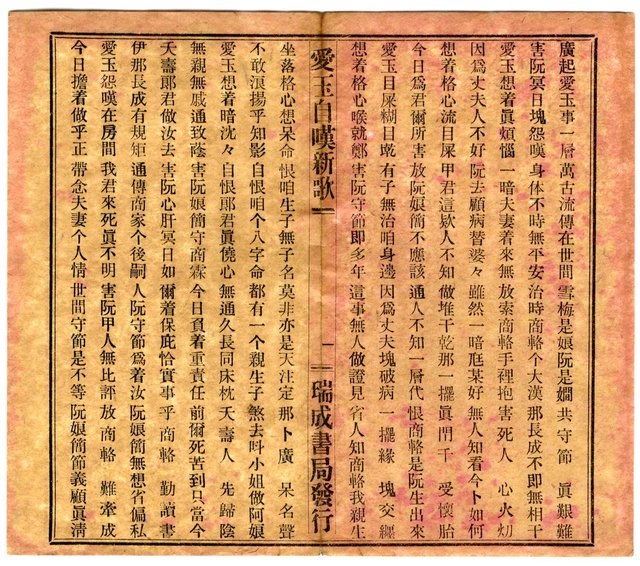 廣起愛玉事一層 萬古流傳在世間 雪梅是娘阮是嫺 共守節 眞艱難
害阮冥日塊怨嘆 身体不時無平安 治時商輅个大漢 那長成不即無相干
愛玉想着眞煩惱 一暗夫妻着來無 放索商輅手裡抱 害死人 心火灱
因爲丈夫人不好 阮去顧病替婆々 雖然一暗𨑨某好 無人知看今卜如何
想着格心流目屎 甲君這欵人不知 做堆干乾那一擺 眞閂千 受懷胎
今日爲君爾所害 放阮娘簡不應該 通人不知一層代 恨商輅是阮生出來
愛玉目屎糊目𣍐 有子無治咱身邊 因爲丈夫塊破病 一擺緣 塊交纏
想着格心喉就鄭 害阮守節即多年 這事無人做證見 省人知商輅我親生
愛玉自嘆新歌
一
瑞成書局發行
坐落格心想呆命 恨咱生子無子名 莫非亦是天注定 那卜廣 呆名聲
不敢浪揚乎知影 自恨咱个八字命 都有一个親生子 煞去叫小姐做阿娘
愛玉想着暗沈々 自恨郎君眞僥心 無通久長同床枕 夭壽人 先歸陰
無親無戚通致蔭 害阮娘簡守商霖 今日負着重責任 前爾死苦到只當今
夭壽郎君做汝去 害阮心肝冥日如 爾着保庇恰實事 乎商輅 勤讀書
伊那長成有規矩 通傳商家个後嗣 人阮守節爲着汝 阮娘簡無想省偏私
愛玉怨嘆在房間 我君來死眞不明 害阮甲人無比評 放商輅 難牽成
今日擔着做乎正 帶念夫妻个人情 世間守節是不等 阮娘簡簡節義顧眞淸